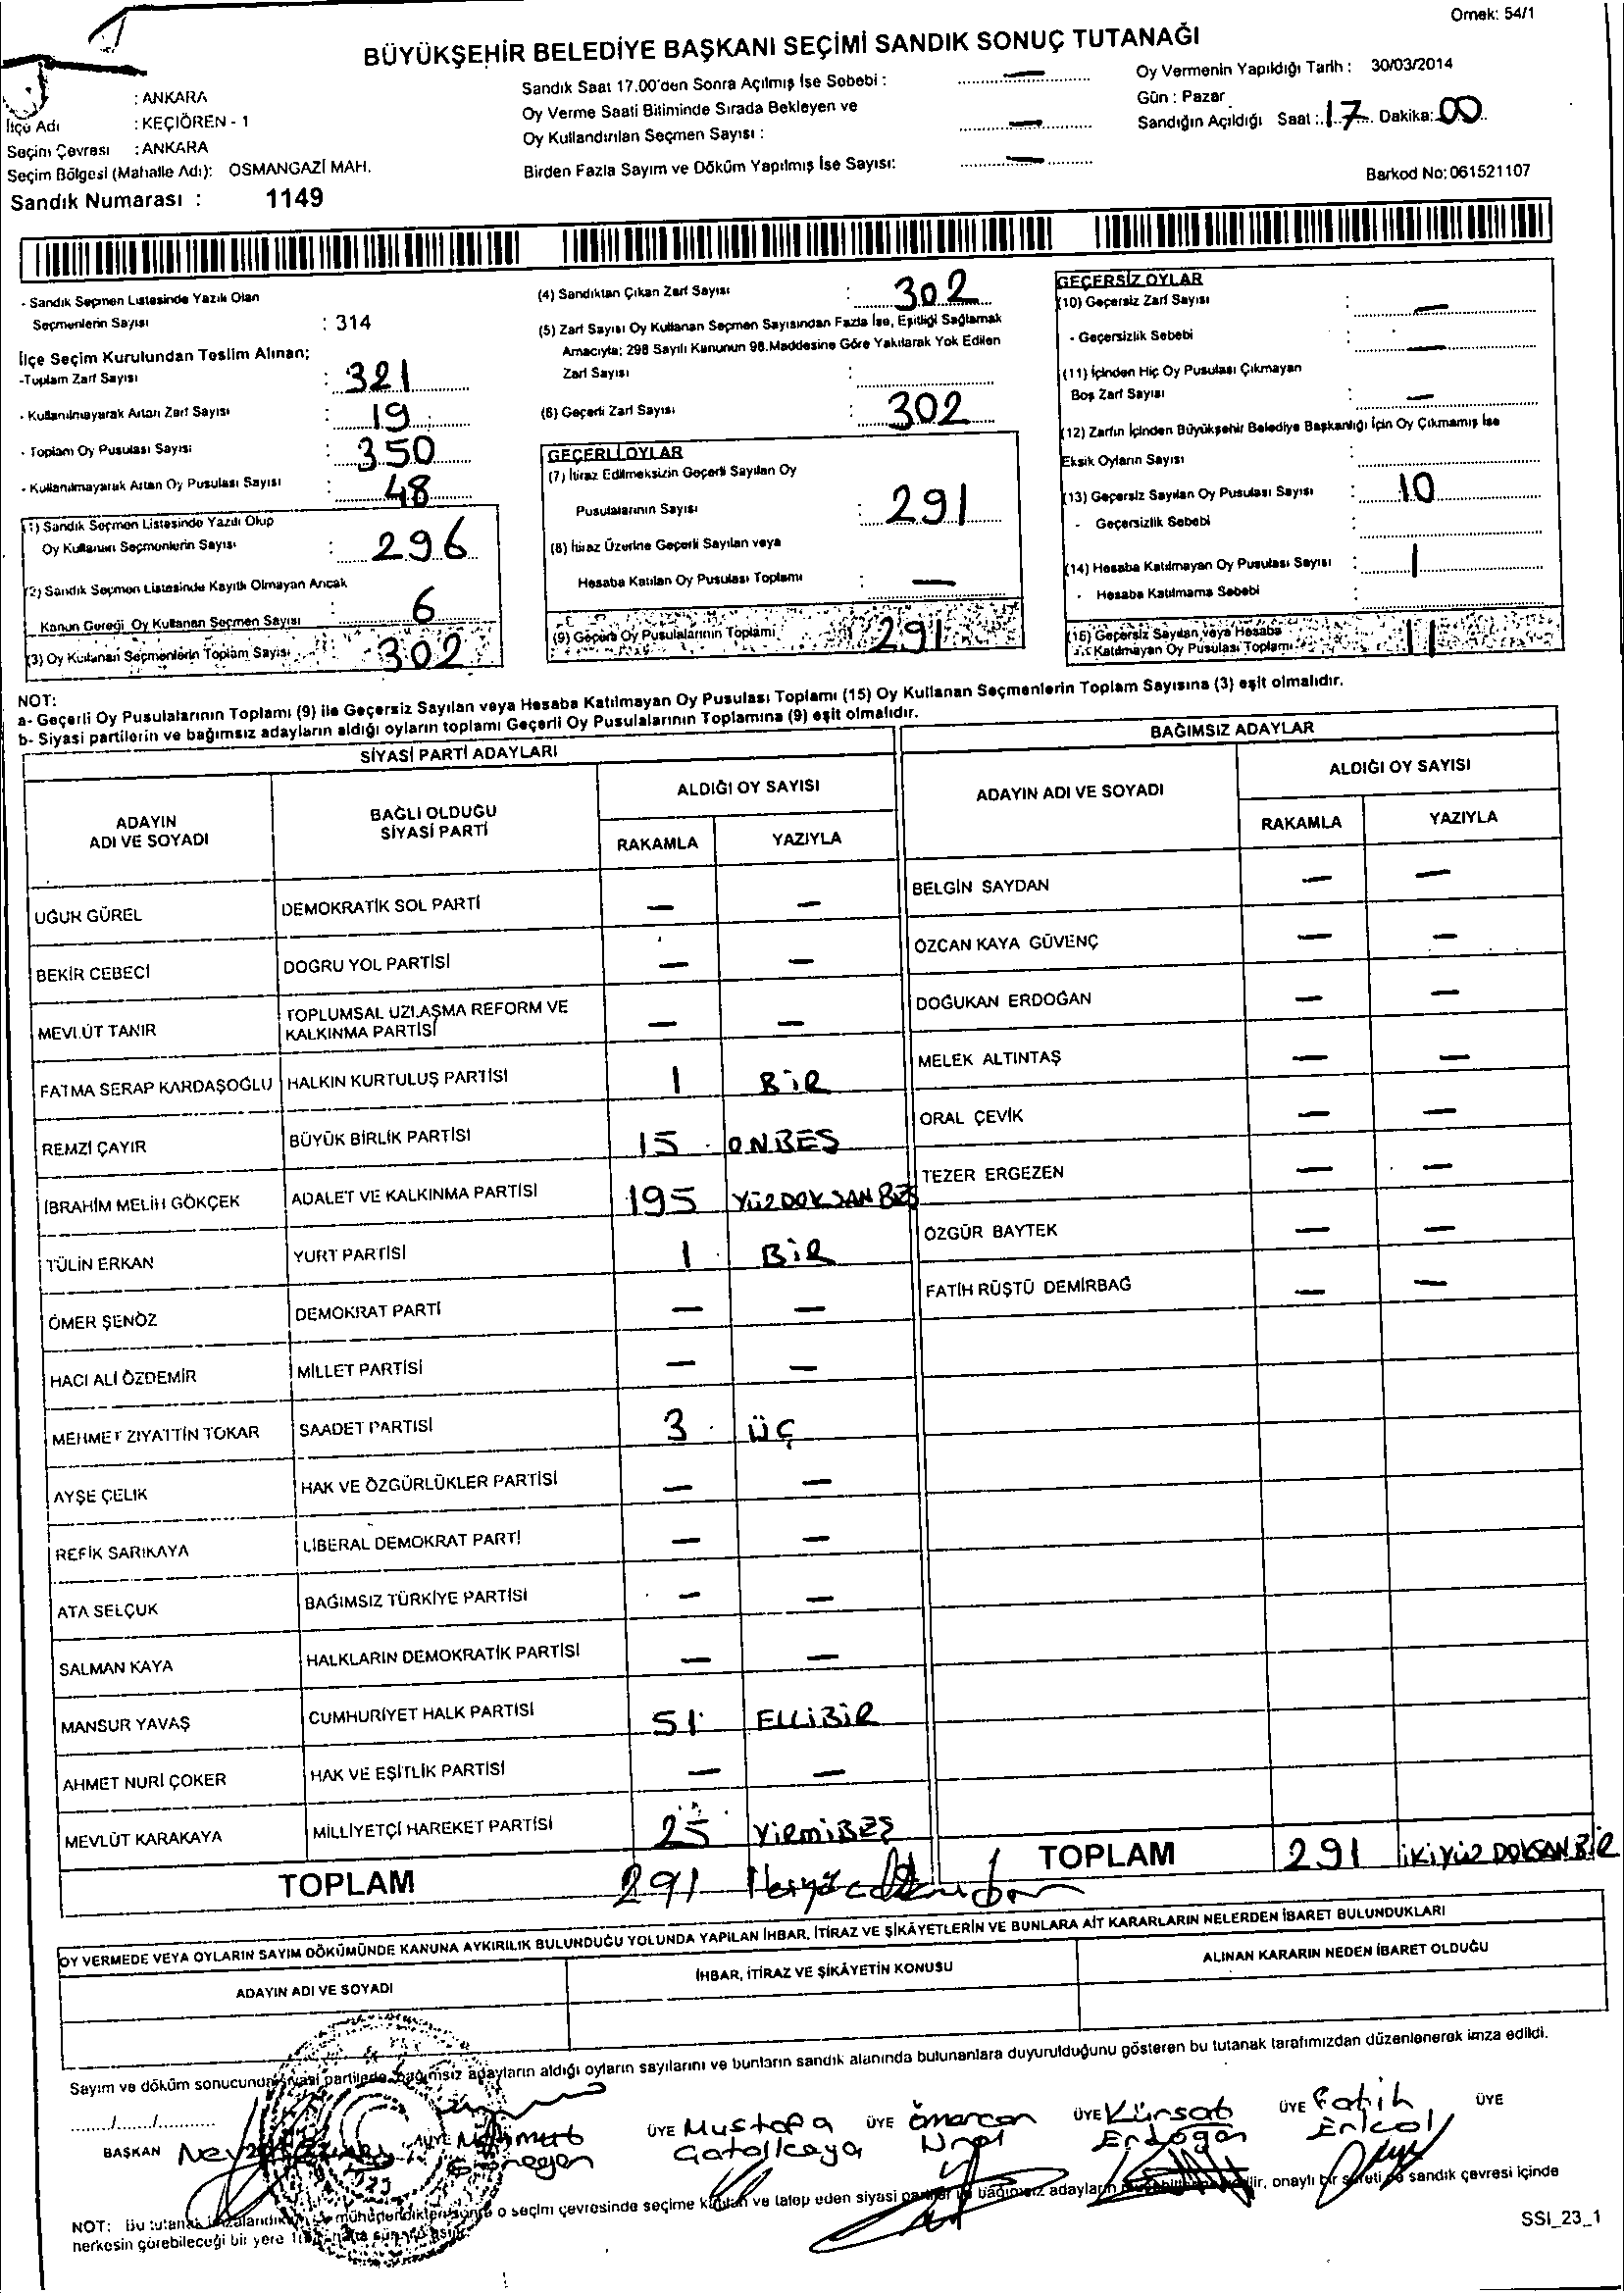 Örnek: 54/1
BÜYÜKŞEHİR BELEDİYE BAŞKANI SEÇİMİ SANDIK SONUÇ TUTANAĞI
: ANKARA
İlçe Adı : KEÇİÖREN - 1
Seçim Çevresi : ANKARA
Seçim Bölgesi (Mahalle Adı): OSMANGAZİ MAH.
Sandık Numarası : 1149
Sandık Saat 17.00'den Sonra Açılmış İse Sebebi : —
Oy Verme Saati Bitiminde Sırada Bekleyen ve
Oy Kullandırılan Seçmen Sayısı : —
Birden Fazla Sayım ve Döküm Yapılmış İse Sayısı: —
Oy Vermenin Yapıldığı Tarih : 30/03/2014
Gün : Pazar
Sandığın Açıldığı Saat : 17 Dakika: 00
Barkod No: 061521107
- Sandık Seçmen Listesinde Yazılı Olan
Seçmenlerin Sayısı : 314
İlçe Seçim Kurulundan Teslim Alınan;
-Toplam Zarf Sayısı : 321
- Kullanılmayarak Artan Zarf Sayısı : 19
- Toplam Oy Pusulası Sayısı : 350
- Kullanılmayarak Artan Oy Pusulası Sayısı : 48
(1) Sandık Seçmen Listesinde Yazılı Olup
Oy Kullanan Seçmenlerin Sayısı : 296
(2) Sandık Seçmen Listesinde Kayıtlı Olmayan Ancak
Kanun Gereği Oy Kullanan Seçmen Sayısı : 6
(3) Oy Kullanan Seçmenlerin Toplam Sayısı : 302
(4) Sandıktan Çıkan Zarf Sayısı : 302
(5) Zarf Sayısı Oy Kullanan Seçmen Sayısından Fazla İse, Eşitliği Sağlamak
Amacıyla; 298 Sayılı Kanunun 98.Maddesine Göre Yakılarak Yok Edilen
Zarf Sayısı :
(6) Geçerli Zarf Sayısı : 302
GEÇERLİ OYLAR
(7) İtiraz Edilmeksizin Geçerli Sayılan Oy
Pusulalarının Sayısı : 291
(8) İtiraz Üzerine Geçerli Sayılan veya
Hesaba Katılan Oy Pusulası Toplamı : —
(9) Geçerli Oy Pusulalarının Toplamı 291
GEÇERSİZ OYLAR
(10) Geçersiz Zarf Sayısı : —
- Geçersizlik Sebebi : —
(11) İçinden Hiç Oy Pusulası Çıkmayan
Boş Zarf Sayısı : —
(12) Zarfın İçinden Büyükşehir Belediye Başkanlığı İçin Oy Çıkmamış İse
Eksik Oyların Sayısı :
(13) Geçersiz Sayılan Oy Pusulası Sayısı : 10
- Geçersizlik Sebebi :
(14) Hesaba Katılmayan Oy Pusulası Sayısı : 1
- Hesaba Katılmama Sebebi :
(15) Geçersiz Sayılan veya Hesaba
Katılmayan Oy Pusulası Toplamı 11
NOT:
a- Geçerli Oy Pusulalarının Toplamı (9) ile Geçersiz Sayılan veya Hesaba Katılmayan Oy Pusulası Toplamı (15) Oy Kullanan Seçmenlerin Toplam Sayısına (3) eşit olmalıdır.
b- Siyasi partilerin ve bağımsız adayların aldığı oyların toplamı Geçerli Oy Pusulalarının Toplamına (9) eşit olmalıdır.
SİYASİ PARTİ ADAYLARI
ADAYIN ADI VE SOYADI BAĞLI OLDUĞU SİYASİ PARTİ ALDIĞI OY SAYISI
RAKAMLA YAZIYLA
UĞUR GÜREL DEMOKRATİK SOL PARTİ — —
BEKİR CEBECİ DOĞRU YOL PARTİSİ — —
MEVLÜT TANIR TOPLUMSAL UZLAŞMA REFORM VE KALKINMA PARTİSİ — —
FATMA SERAP KARDAŞOĞLU HALKIN KURTULUŞ PARTİSİ 1 BİR
REMZİ ÇAYIR BÜYÜK BİRLİK PARTİSİ 15 ONBEŞ
İBRAHİM MELİH GÖKÇEK ADALET VE KALKINMA PARTİSİ 195 YÜZDOKSANBEŞ
TÜLİN ERKAN YURT PARTİSİ 1 BİR
ÖMER ŞENÖZ DEMOKRAT PARTİ — —
HACI ALİ ÖZDEMİR MİLLET PARTİSİ — —
MEHMET ZİYATTİN TOKAR SAADET PARTİSİ 3 ÜÇ
AYŞE ÇELİK HAK VE ÖZGÜRLÜKLER PARTİSİ — —
REFİK SARIKAYA LİBERAL DEMOKRAT PARTİ — —
ATA SELÇUK BAĞIMSIZ TÜRKİYE PARTİSİ — —
SALMAN KAYA HALKLARIN DEMOKRATİK PARTİSİ — —
MANSUR YAVAŞ CUMHURİYET HALK PARTİSİ 51 ELLİBİR
AHMET NURİ ÇOKER HAK VE EŞİTLİK PARTİSİ — —
MEVLÜT KARAKAYA MİLLİYETÇİ HAREKET PARTİSİ 25 YİRMİBEŞ
TOPLAM 291
BAĞIMSIZ ADAYLAR
ADAYIN ADI VE SOYADI ALDIĞI OY SAYISI
RAKAMLA YAZIYLA
BELGİN SAYDAN — —
ÖZCAN KAYA GÜVENÇ — —
DOĞUKAN ERDOĞAN — —
MELEK ALTINTAŞ — —
ORAL ÇEVİK — —
TEZER ERGEZEN — —
ÖZGÜR BAYTEK — —
FATİH RÜŞTÜ DEMİRBAĞ — —
TOPLAM 291 İKİYÜZ DOKSAN BİR
OY VERMEDE VEYA OYLARIN SAYIM DÖKÜMÜNDE KANUNA AYKIRILIK BULUNDUĞU YOLUNDA YAPILAN İHBAR, İTİRAZ VE ŞİKÂYETLERİN VE BUNLARA AİT KARARLARIN NELERDEN İBARET BULUNDUKLARI
ADAYIN ADI VE SOYADI İHBAR, İTİRAZ VE ŞİKÂYETİN KONUSU ALINAN KARARIN NEDEN İBARET OLDUĞU
Sayım ve döküm sonucunda siyasi partilerle bağımsız adayların aldığı oyların sayılarını ve bunların sandık alanında bulunanlara duyurulduğunu gösteren bu tutanak tarafımızdan düzenlenerek imza edildi.
...../...../..........
BAŞKAN ÜYE Mustafa ÜYE Ömercan ÜYE Kürşat ÜYE Fatih ÜYE
Çatalkaya Ünal Erdoğan Erkol
NOT: Bu tutanak o seçim çevresinde seçime katılan ve talep eden siyasi bağımsız adayların onaylı bir sureti de sandık çevresi içinde
herkesin görebileceği bir yere
SSI_23_1